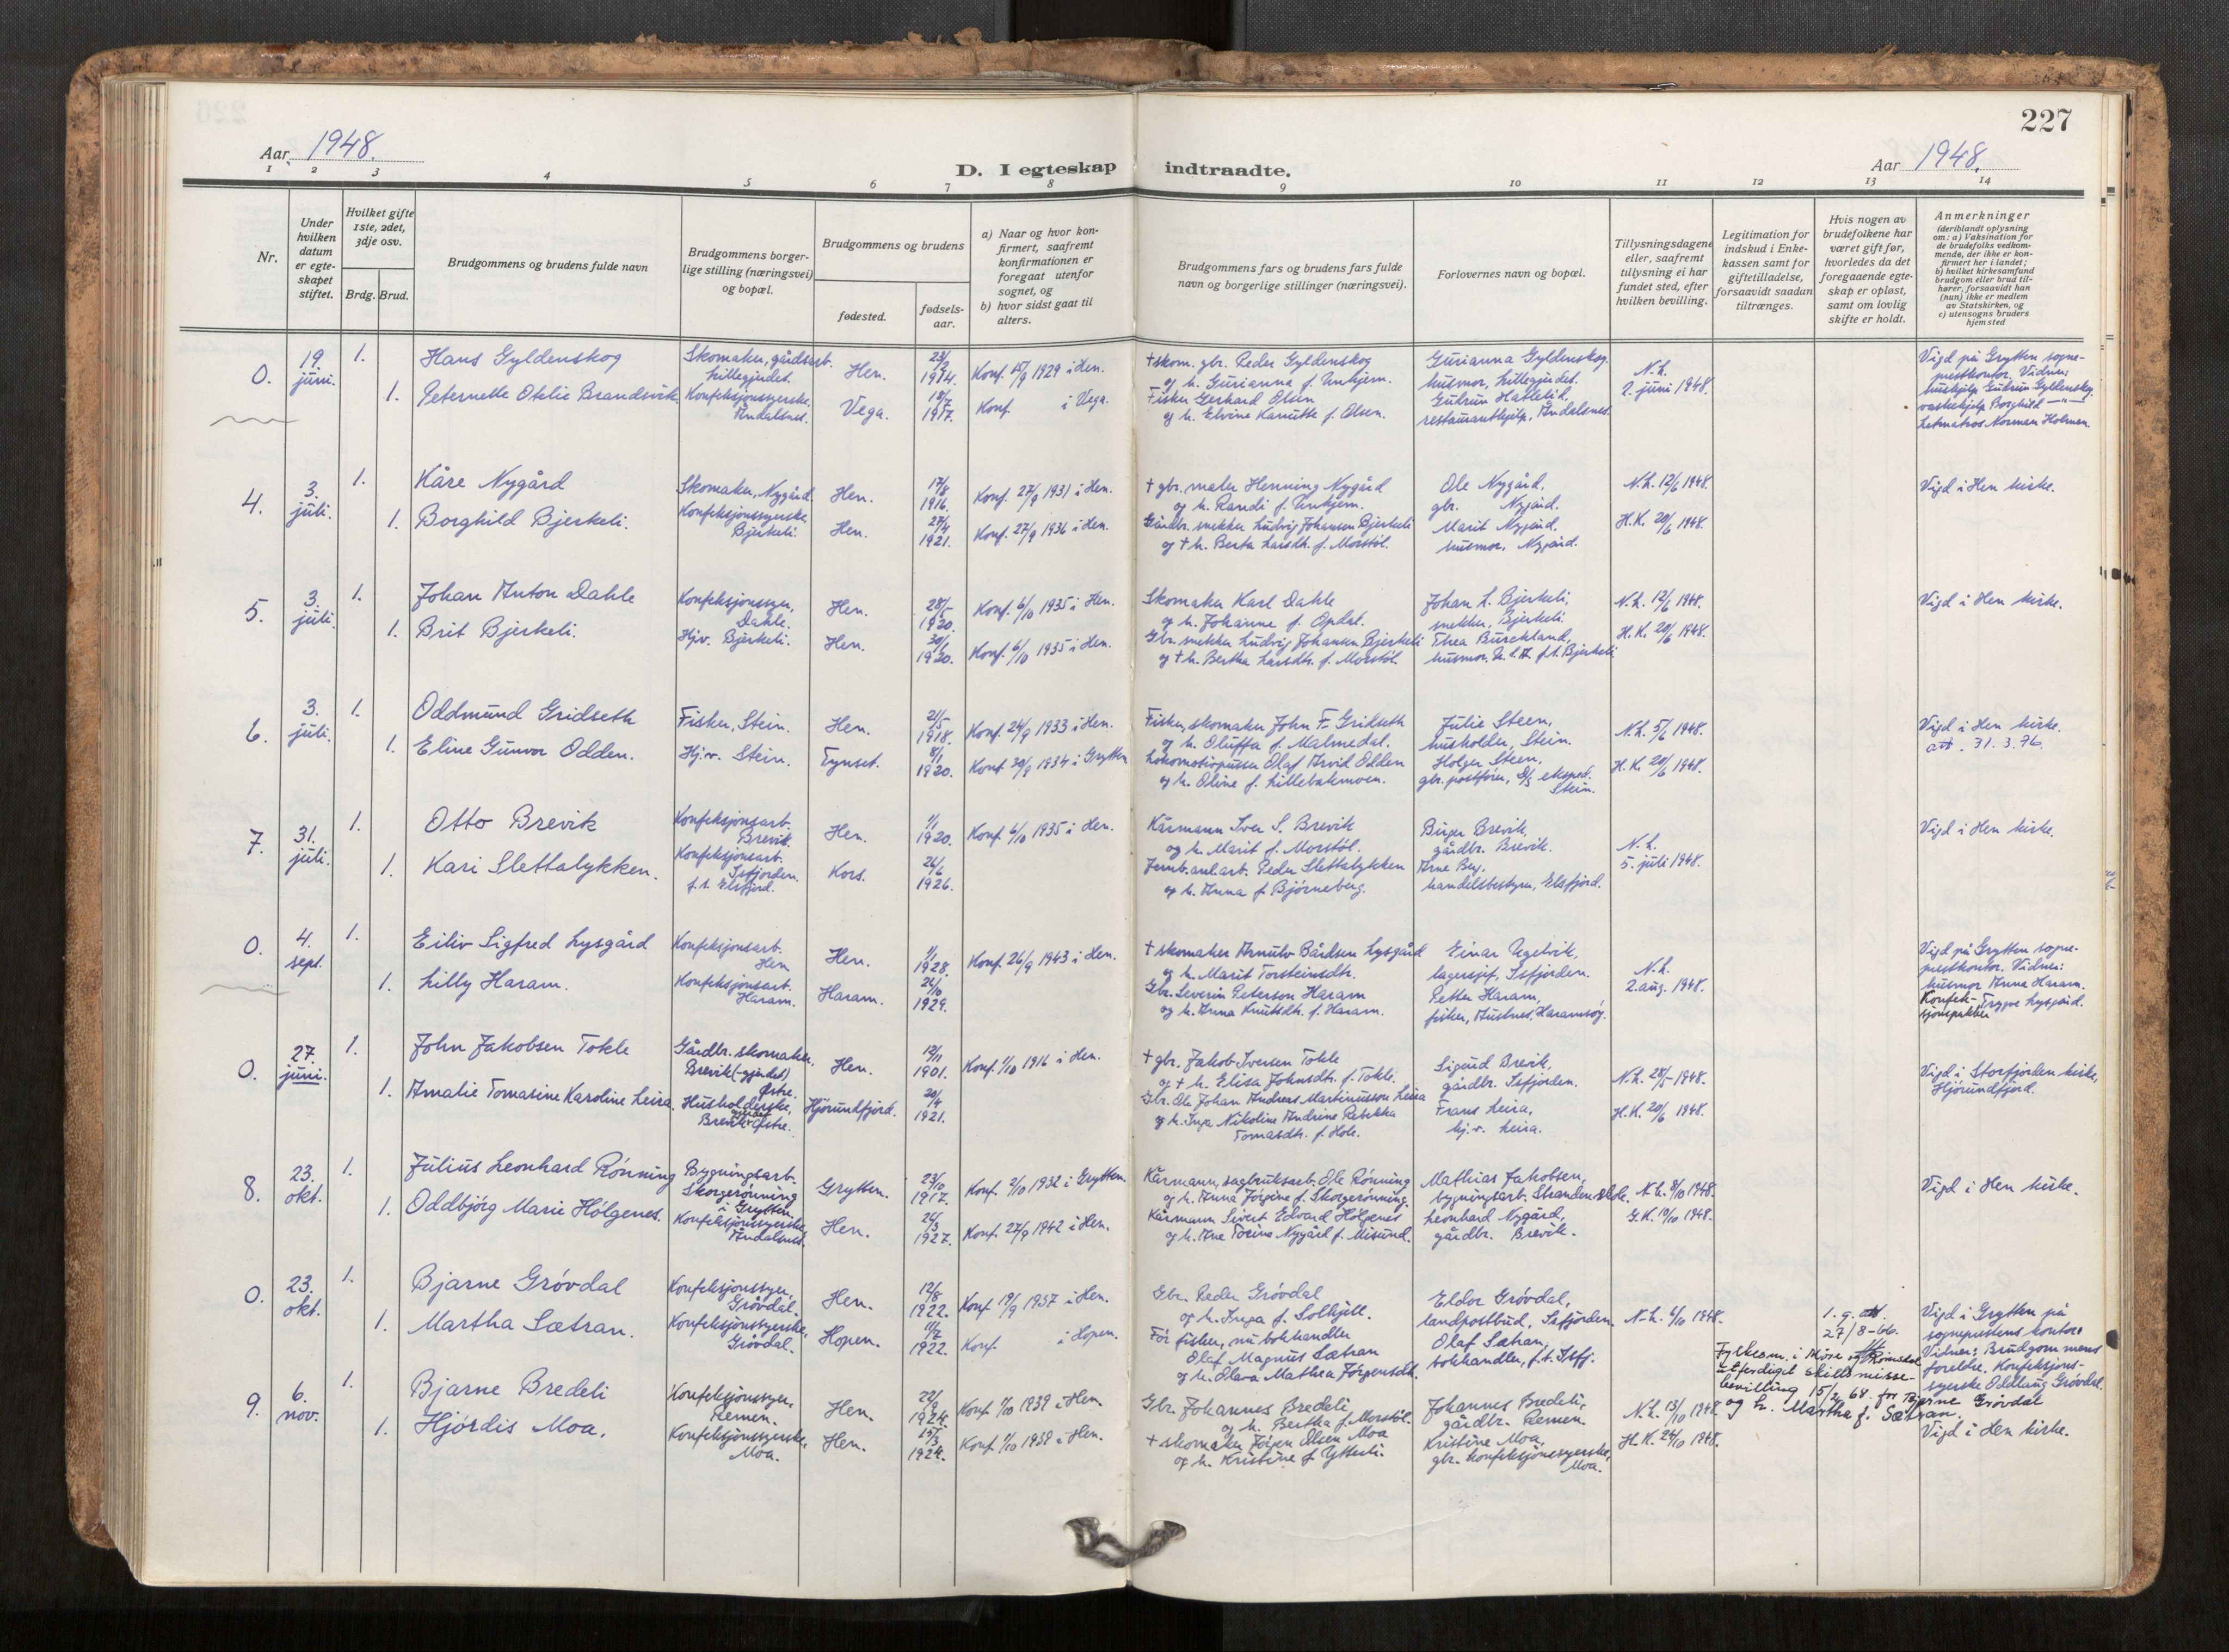 227
Aar 1948.
D. I egteskap indtraadte.
Aar 1948.
1 2 3 4 5 6 7 8 9 10 11 12 13 14
Nr.
Under hvilken datum er egteskapet stiftet.
Hvilket gifte 1ste, 2det, 3dje osv.
Brdg. Brud.
Brudgommens og brudens fulde navn
Brudgommens borgerlige stilling (næringsvei) og bopæl.
Brudgommens og brudens
fødested.
fødselsaar.
a) Naar og hvor konfirmert, saafremt konfirmationen er foregaat utenfor sognet, og
b) hvor sidst gaat til alters.
Brudgommens fars og brudens fars fulde navn og borgerlige stillinger (næringsvei).
Forlovernes navn og bopæl.
Tillysningsdagene eller, saafremt tillysning ei har fundet sted, efter hvilken bevilling.
Legitimation for indskud i Enkekassen samt for giftetilladelse, forsaavidt saadan tiltrænges.
Hvis nogen av brudefolkene har været gift før, hvorledes da det foregaaende egteskap er opløst, samt om lovlig skifte er holdt.
Anmerkninger (deriblandt oplysning om: a) Vaksination for de brudefolks vedkommende, der ikke er konfirmert her i landet; b) hvilket kirkesamfund brudgom eller brud tilhører, forsaavidt han (hun) ikke er medlem av Statskirken, og c) utensogns bruders hjemsted
0. 19. juni. 1. Hans Gyldenskog
Skomaker, gårdsarb. Lillegjerdet. Hen. 23/9 1914. Konf. 15/9 1929 i Hen.
† skom. gbr. Peder Gyldenskog og h. Gurianna f. Unhjem.
Gurianna Gyldenskog, husmor, Lillegjerdet.
N.L. 2. juni 1948.
Vigd på Grytten sogneprestkontor. Vidner: hushjelp Gudrun Gyldenskog, vaskehjelp Borghild —"— Letmatros Norman Holmen.
1. Peternelle Otelie Brandsvik.
Konfeksjonssyerske, Åndalsnes. Vega. 18/7 1917. Konf. i Vega.
Fisker Gerhard Olsen og h. Elvine Kanutte f. Olsen.
Gudrun Hatlelid, restauranthjelp, Åndalsnes.
4. 3. juli. 1. Kåre Nygård
Skomaker, Nygård. Hen. 17/8 1916. Konf. 27/9 1931 i Hen.
† gbr. maler Henning Nygård og h. Randi f. Unhjem.
Ole Nygård, gbr. Nygård.
N.L. 12/6 1948.
Vigd i Hen kirke.
1. Borghild Bjerkeli.
Konfeksjonssyerske, Bjerkeli. Hen. 27/4 1921. Konf. 27/9 1936 i Hen.
Gårdbr. snekker Ludvig Johansen Bjerkeli og † h. Berta Larsdh. f. Morstøl.
Marit Nygård, husmor, Nygård.
H.K. 20/6 1948.
5. 3. juli. 1. Johan Anton Dahle
Konfeksjonssyer, Dahle. Hen. 28/5 1920. Konf. 6/10 1935 i Hen.
Skomaker Karl Dahle og h. Johanne f. Opdal.
Johan L. Bjerkeli, snekker, Bjerkeli.
N.L. 12/6 1948.
Vigd i Hen kirke.
1. Brit Bjerkeli.
Hjv. Bjerkeli. Hen. 30/6 1920. Konf. 6/10 1935 i Hen.
Gbr. snekker Ludvig Johansen Bjerkeli og † h. Bertha Larsdh. f. Morstøl.
Thea Burckland, husmor, U.S.A. f.t. Bjerkeli
H.K. 20/6 1948.
6. 3. juli. 1. Oddmund Gridseth
Fisker, Stein. Hen. 21/5 1918. Konf. 24/9 1933 i Hen.
Fisker, skomaker John F. Gridseth og h. Oluffa f. Malmedal.
Julie Steen, husholder, Stein.
N.L. 5/6 1948.
Vigd i Hen kirke. att. 31.3.76.
1. Eline Gunvor Odden.
Hj.v. Stein. Tynset. 8/1 1920. Konf. 30/9 1934 i Grytten
Lokomotivpusser Olaf Arvid Odden og h. Oline f. Lillebakmoen.
Holger Steen, gbr. postfører, D/S eksped. Stein.
H.K. 20/6 1948.
7. 31. juli. 1. Otto Brevik
Konfeksjonsarb. Brevik. Hen. 1/1 1920. Konf. 6/10 1935 i Hen.
Kårmann Iver S. Brevik og h. Marit f. Morstøl.
Birger Brevik, gårdbr. Brevik.
N.L. 5. juli 1948.
Vigd i Hen kirke.
1. Kari Slettalykken.
Konfeksjonsarb. Isfjorden. f.t. Elsfjord. Kors. 26/6 1926.
Jernb.anl.arb. Peder Slettalykken og h. Anna f. Bjørneberg.
Arne Berg, handelsbestyrer, Elsfjord.
0. 4. sept. 1. Eiliv Sigfred Lysgård
Konfeksjonsarb. Hen Hen. 1/1 1928. Konf. 26/9 1943 i Hen.
† skomaker Arnulv Bårdsen Lysgård og h. Marit Torsteinsdtr.
Einar Ugelvik, lagersjef, Isfjorden.
N.L. 2. aug. 1948.
Vigd på Grytten sogneprestkontor. Vidner: husmor Anna Haram. Konfeksjonspakker Trygve Lysgård.
1. Lilly Haram.
Konfeksjonsarb. Haram. Haram. 26/10 1929.
Gbr. Severin Peterson Haram og h. Anna Knutsdh. f. Haram.
Petter Haram, fisker, Austnes, Haramsøy.
0. 27. juni. 1. John Jakobsen Tokle
Gårdbr. skomaker, Brevik (-gjerdet) Østre. Hen. 12/11 1901. Konf. 1/10 1916 i Hen.
† gbr. Jakob Iversen Tokle og † h. Elisa Johnsdtr. f. Tokle.
Sigurd Brevik, gårdbr. Isfjorden.
N.L. 28/5 1948.
Vigd i Storfjorden kirke, Hjørundfjord.
1. Amalie Tomasine Karoline Leira.
Husholderske, Brevikgjerdet Østre. Hjørundfjord. 20/4 1921.
Gbr. Ole Johan Andreas Martinusson Leira og h. Inga Nikoline Andrine Rebekka Tomasdtr. f. Hole.
Frans Leira, hj.v. Leira.
H.K. 20/6 1948.
8. 23. okt. 1. Julius Leonhard Rønning
Bygningsarb. Skorgerønning i Grytten. Grytten. 23/10 1917. Konf. 2/10 1932 i Grytten.
Kårmann, sagbruksarb. Ole Rønning og h. Anna Jørgine f. Skorgerønning.
Mathias Jakobsen, bygningsarb. Stranden skole.
N.L. 8/10 1948.
Vigd i Hen kirke.
1. Oddbjørg Marie Hølgenes.
Konfeksjonssyerske, Åndalsnes. Hen. 26/3 1927. Konf. 27/9 1942 i Hen.
Kårmann Sivert Edvard Hølgenes og h. Ane Torine Nygård f. Misund.
Leonhard Nygård, gårdbr. Brevik.
G.K. 10/10 1948.
0. 23. okt. 1. Bjarne Grøvdal
Konfeksjonssyer, Grøvdal. Hen. 12/8 1922. Konf. 19/9 1937 i Hen.
Gbr. Peder Grøvdal og h. Inga f. Solhjell.
Eldor Grøvdal, landpostbud, Isfjorden.
N.L. 6/10 1948.
1. g. att. 27/8-66.
Vigd i Grytten på sogneprestens kontor. Vidner: Brudgommens foreldre, Konfeksjonssyerske Oddlaug Grøvdal.
1. Martha Sætran.
Konfeksjonssyerske, Grøvdal. Hopen. 11/7 1922. Konf. i Hopen.
Før fisker, nu bokhandler Olaf Magnus Sætran og h. Olava Mathea Jørgensdh.
Olaf Sætran, bokhandler, f.t. Isfj.
Fylkesm. i Møre og Romsdal utferdiget skilsmissebevilling 15/2 68. for Bjarne Grøvdal og h. Martha f. Sætran.
9. 6. nov. 1. Bjarne Bredeli
Konfeksjonssyer, Remen. Hen. 22/9 1924. Konf. 1/10 1939 i Hen.
Gbr. Johannes Bredeli og h. Bertha f. Morstøl.
Johannes Bredeli, gårdbr. Remen.
N.L. 13/10 1948.
Vigd i Hen kirke.
1. Hjørdis Moa.
Konfeksjonssyerske, Moa. Hen. 15/3 1924. Konf. 1/10 1939 i Hen.
† skomaker Jørgen Olsen Moa og h. Kristine f. Ytterli.
Kristine Moa, gbr. konfeksjonssyerske, Moa.
H.K. 24/10 1948.